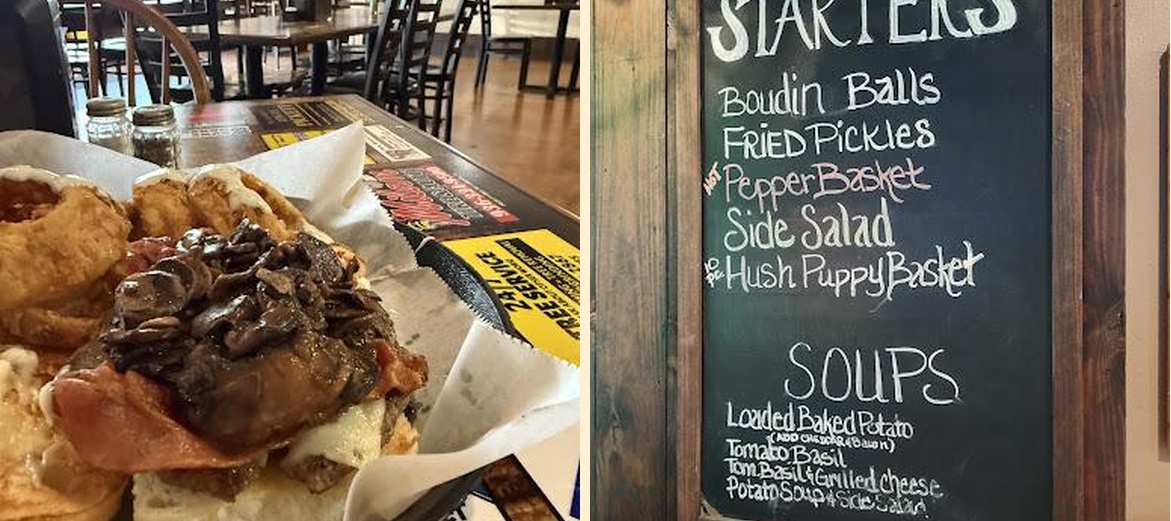 24/7
FREE SERVICE
STARTERS
Boudin Balls
FRIED PickLEs
HOT PepperBasket
Side Salad
10 pc. Hush PuppyBasket
SOUPS
Loaded Baked Potato
(ADD CHEDDAR & Bacon)
Tomato Basil
Tom.Basil & Grilled cheese
Potato Soup & Side Salad